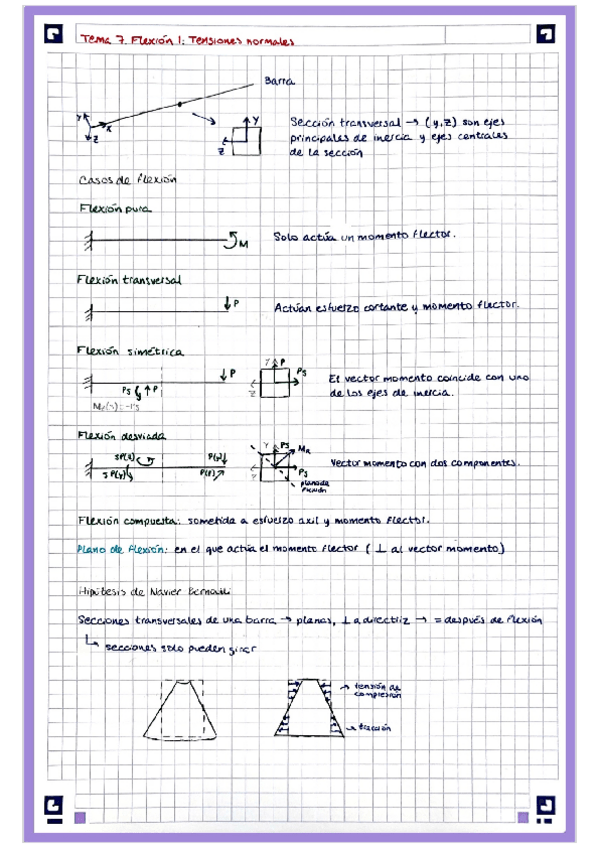 Tema 7. Flexión 1: Tensiones normales
Barra
Y
X
Z
Y
Z
Sección transversal → (y,z) son ejes
principales de inercia y ejes centrales
de la sección
Casos de flexión
Flexión pura
M
Solo actúa un momento flector.
Flexión transversal
P
Actúan esfuerzo cortante y momento flector.
Flexión simétrica
P
Ps
P
Y
P
Ps
Z
El vector momento coincide con uno
de los ejes de inercia.
Flexión desviada
SP(z)
SP(y)
P(y)
Y
Ps
MR
Ps
Z
plano de
flexión
Vector momento con dos componentes.
Flexión compuesta: sometida a esfuerzo axil y momento flector.
Plano de flexión: en el que actúa el momento flector ( ⊥ al vector momento)
Hipótesis de Navier Bernouili
Secciones transversales de una barra → planas, ⊥ a directriz → = después de flexión
↳ secciones solo pueden girar
→ tensión de
compresión
→ tracción